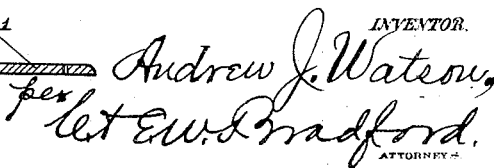 1
INVENTOR.
Andrew J. Watson,
per
E.W. Bradford.
ATTORNEY